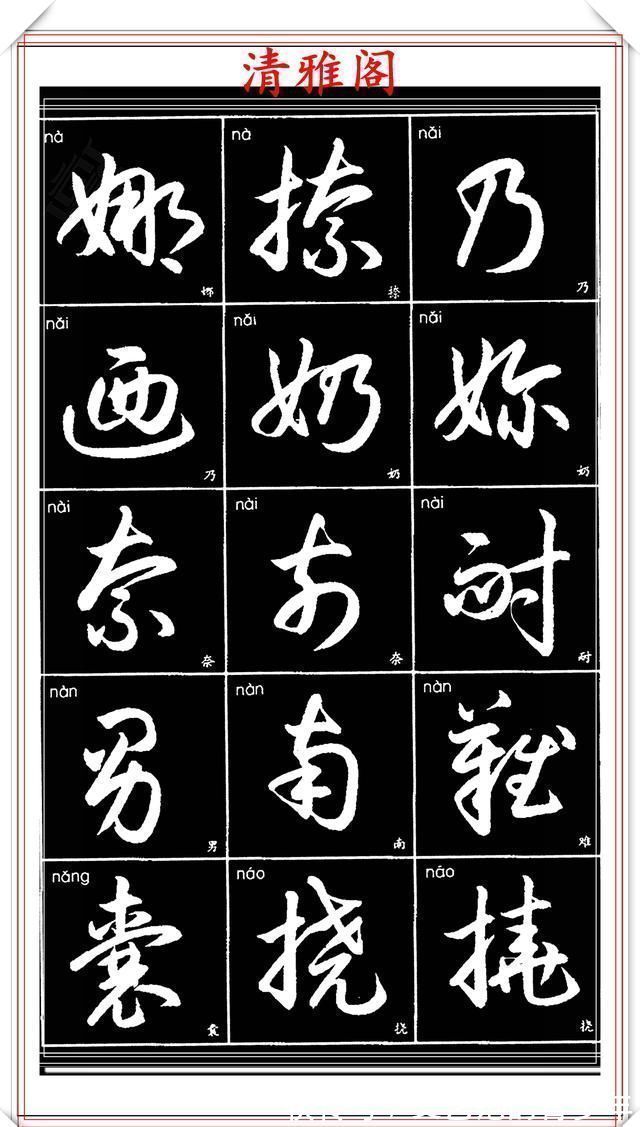 清雅阁
nà nà nǎi
娜 捺 乃
娜 捺 乃
nǎi nǎi nǎi
迺 奶 妳
乃 奶 奶
nài nài nài
奈 奈 耐
奈 奈 耐
nàn nàn nàn
男 南 難
男 南 难
nǎng náo náo
囊 挠 撓
囊 挠 挠